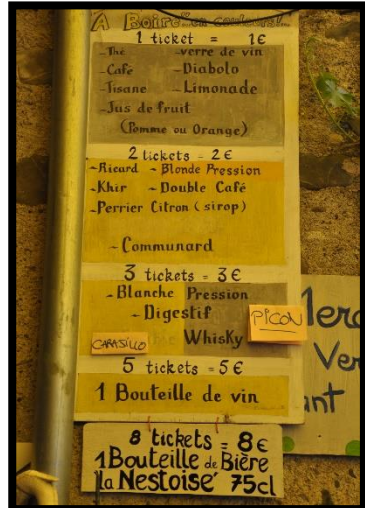 A Boire...
1 ticket = 1€
-Thé -verre de vin
-Café -Diabolo
-Tisane -Limonade
-Jus de fruit
(Pomme ou Orange)
2 tickets = 2€
-Ricard - Blonde Pression
-Khir - Double Café
-Perrier Citron (sirop)
-Communard
3 tickets = 3€
-Blanche Pression
-Digestif
PICON
CARASILLO
Whisky
5 tickets = 5€
1 Bouteille de vin
8 tickets = 8€
1 Bouteille de Bière
la Nestoise 75cl
Merc
Ver
ant